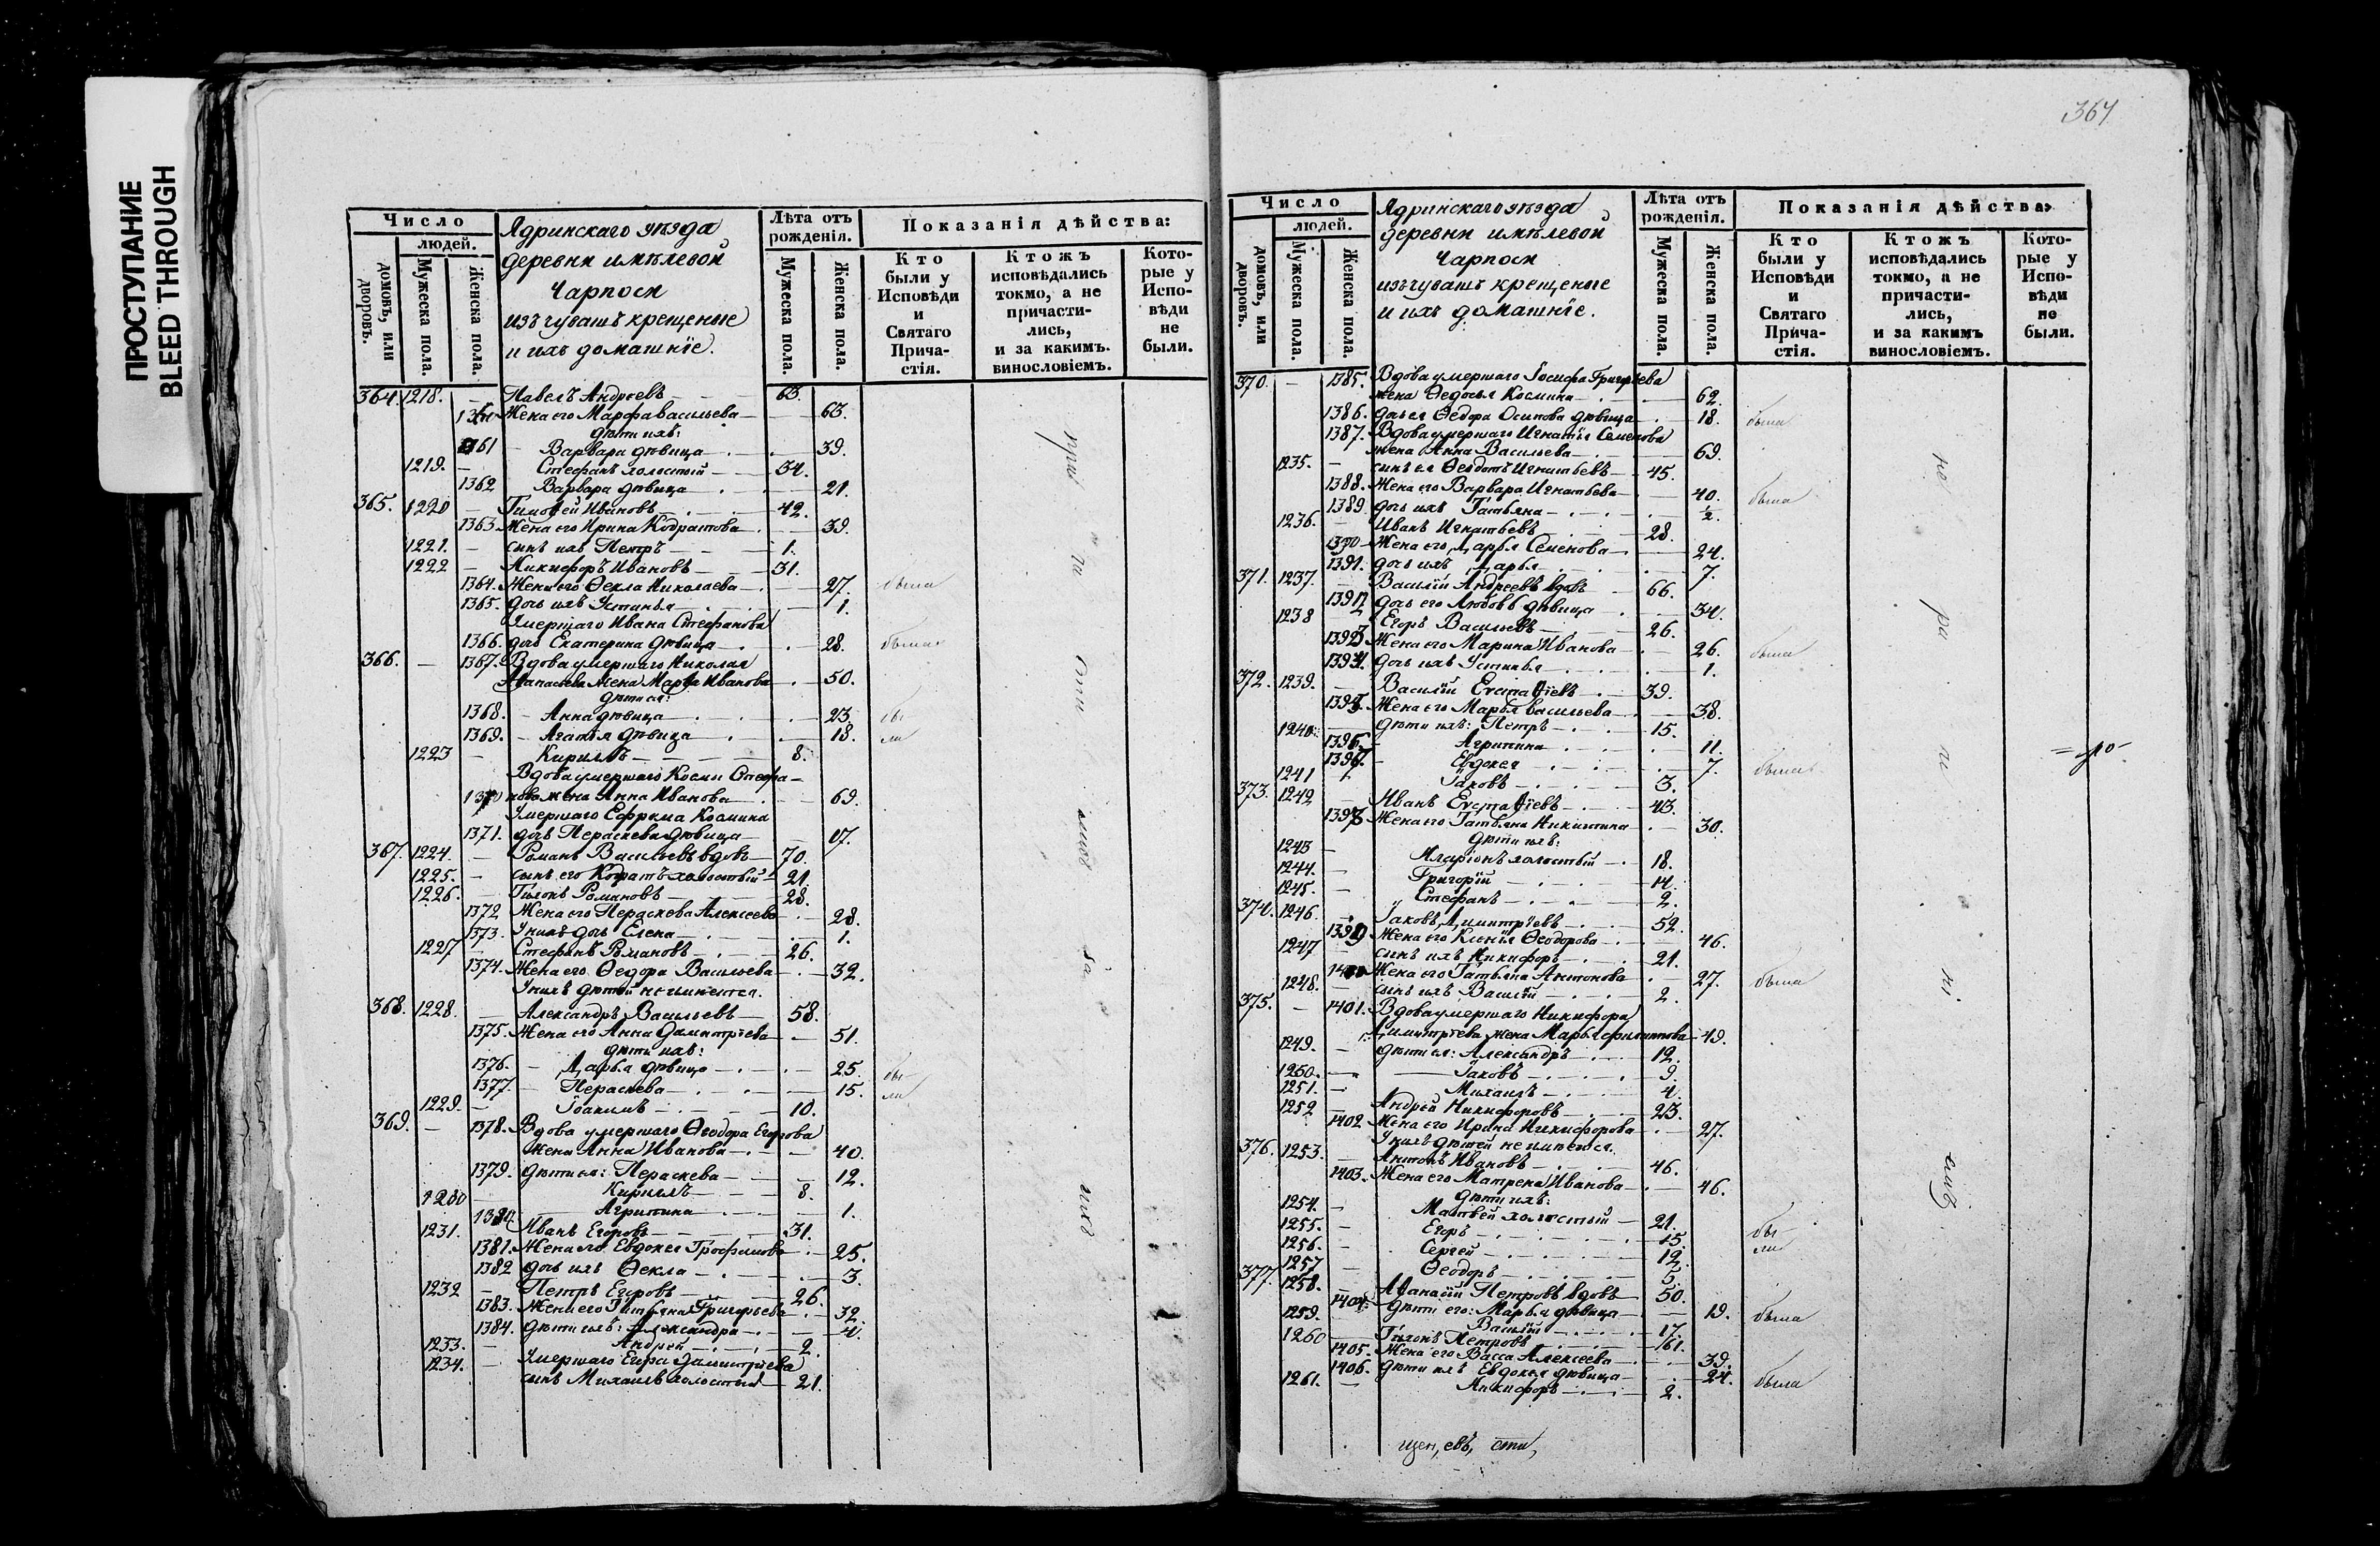 ПРОСТУПАНИЕ
BLEED THROUGH
Число
людей.
домовъ, или дворовъ.
Мужеска пола.
Женска пола.
Ядринскаго уѣзда
деревни имѣлевой
Чарпоси
изъ чувашъ крещеные
и ихъ домашнїе.
Лѣта отъ рожденія.
Мужеска пола.
Женска пола.
Показанія дѣйства:
Кто были у Исповѣди и Святаго Причастія.
Ктожъ исповѣдались токмо, а не причастились, и за какимъ винословіемъ.
Которые у Исповѣди не были.
364. 1218. — Павелъ Андреевъ — 63.
Жена его Марфа Васильева — 63.
дѣти ихъ:
1361 — Варвара дѣвица — 39.
1219. — Стефанъ холостый — 34.
1362 Варвара дѣвица — 21.
365. 1220 — Тимофей Ивановъ — 42.
1363 Жена его Ирина Кодратова — 39.
1221. — сынъ ихъ Петръ — 1.
1222 — Никифоръ Ивановъ — 31.
1364. Жена его Ѳекла Николаева — 27. была
1365. дочь ихъ Устинья — 1.
Умершаго Ивана Стефанова
1366. дочь Екатерина дѣвица — 28. была
366. — 1367. Вдова умершаго Николая
Аѳанасьева жена Марѳа Иванова — 50.
дѣти ея:
1368. — Анна дѣвица — 23. бы
1369. — Агафїя дѣвица — 18. ли
1223 — Кириллъ — 8.
Вдова умершаго Космы Стефа-
1370 нова жена Анна Иванова — 69.
Умершаго Ефрема Космина
1371. дочь Пераскева дѣвица — 17.
367. 1224. — Романъ Васильевъ вдовъ — 70.
1225. — сынъ его Кодратъ холостый — 21.
1226. — Тихонъ Романовъ — 28.
1372 Жена его Пераскева Алексеева — 28.
1373. У нихъ дочь Елена — 1.
1227 — Стефанъ Романовъ — 26.
1374. Жена его Ѳедора Васильева — 32.
У нихъ дѣтей не имѣется.
368. 1228. — Александръ Васильевъ — 58.
1375. Жена его Анна Димитрїева — 51.
дѣти ихъ:
1376. — Дарья дѣвица — 25. бы
1377. — Пераскева — 15. ли
1229. — Іоакимъ — 10.
369. — 1378. Вдова умершаго Ѳеодора Егорова
жена Анна Иванова — 40.
1379. дѣти ея: Пераскева — 12.
1230 — Кириллъ — 8.
1380 — Агрипина — 1.
1231. Иванъ Егоровъ — 31.
1381. Жена его Евдокея Трофимова — 25.
1382 дочь ихъ Ѳекла — 3.
1232 — Петръ Егоровъ — 26.
1383. Жена его Татьяна Григорьева — 32.
1384. дѣти ихъ: Александра — 4.
1233. — Андрей — 2.
1234. — Умершаго Егора Димитрїева
сынъ Михаилъ холостый — 21.
364
Число
людей.
домовъ, или дворовъ.
Мужеска пола.
Женска пола.
Ядринскаго уѣзда
деревни имѣлевой
Чарпоси
изъ чувашъ крещеные
и ихъ домашнїе.
Лѣта отъ рожденія.
Мужеска пола.
Женска пола.
Показанія дѣйства:
Кто были у Исповѣди и Святаго Причастія.
Ктожъ исповѣдались токмо, а не причастились, и за какимъ винословіемъ.
Которые у Исповѣди не были.
370. — 1385. Вдова умершаго Іосифа Григорьева
жена Ѳедосья Космина — 62.
1386. дочь ея Ѳедора Осипова дѣвица — 18. была
1387. Вдова умершаго Игнатїя Семенова
жена Анна Васильева — 69.
1235. — сынъ ея Ѳеодотъ Игнатьевъ — 45.
1388. Жена его Варвара Игнатьева — 40. была
1389 дочь ихъ Татьяна — ½.
1236. — Иванъ Игнатьевъ — 28.
1390 — Жена его Дарья Семенова — 24.
1391. дочь ихъ Дарья — 7.
371. 1237. — Василїй Андреевъ вдовъ — 66.
1392 дочь его Любовь дѣвица — 34.
1238 — Егоръ Васильевъ — 26.
1393 Жена его Марина Иванова — 26. была
1394. дочь ихъ Устинья — 1.
372. 1239. — Василїй Евстафїевъ — 39.
1395. Жена его Марья Васильева — 38.
1240. — дѣти ихъ: Петръ — 15.
1396. — Агрипина — 11.
1397. — Евдокея — 7. была
1241 — Іаковъ — 3.
373. 1242 — Иванъ Евстафїевъ — 43.
1398 Жена его Татьяна Никитина — 30.
дѣти ихъ:
1243 — Иларїонъ холостый — 18.
1244. — Григорїй — 14.
1245. — Стефанъ — 2.
374. 1246. — Іаковъ Димитрїевъ — 52.
1399 Жена его Ксенїя Ѳеодорова — 46.
1247 — сынъ ихъ Никифоръ — 21.
1400 Жена его Татьяна Антонова — 27. была
1248. — сынъ ихъ Василїй — 2.
375. — 1401. Вдова умершаго Никифора
Димитрїева жена Марья Филиппова — 49.
1249. — дѣти ея: Александръ — 12.
1250. — Іаковъ — 9.
1251. — Михаилъ — 4.
1252 — Андрей Никифоровъ — 23.
1402. Жена его Ирина Никифорова — 27.
У нихъ дѣтей не имѣется.
376. 1253. — Антонъ Ивановъ — 46.
1403. Жена его Матрена Иванова — 46.
дѣти ихъ:
1254. — Матвей холостый — 21.
1255. — Егоръ — 15. бы
1256. — Сергей — 12. ли
1257 — Ѳеодоръ — 5.
377. 1258. — Аѳанасїй Петровъ вдовъ — 50.
1404. дѣти его: Марья дѣвица — 19. была
1259. Василїй — 17.
1260 — Тихонъ Петровъ — 61.
1405. Жена его Васса Алексеева — 39.
1406. дѣти ихъ Евдокея дѣвица — 24. была
1261. — Никифоръ — 2.